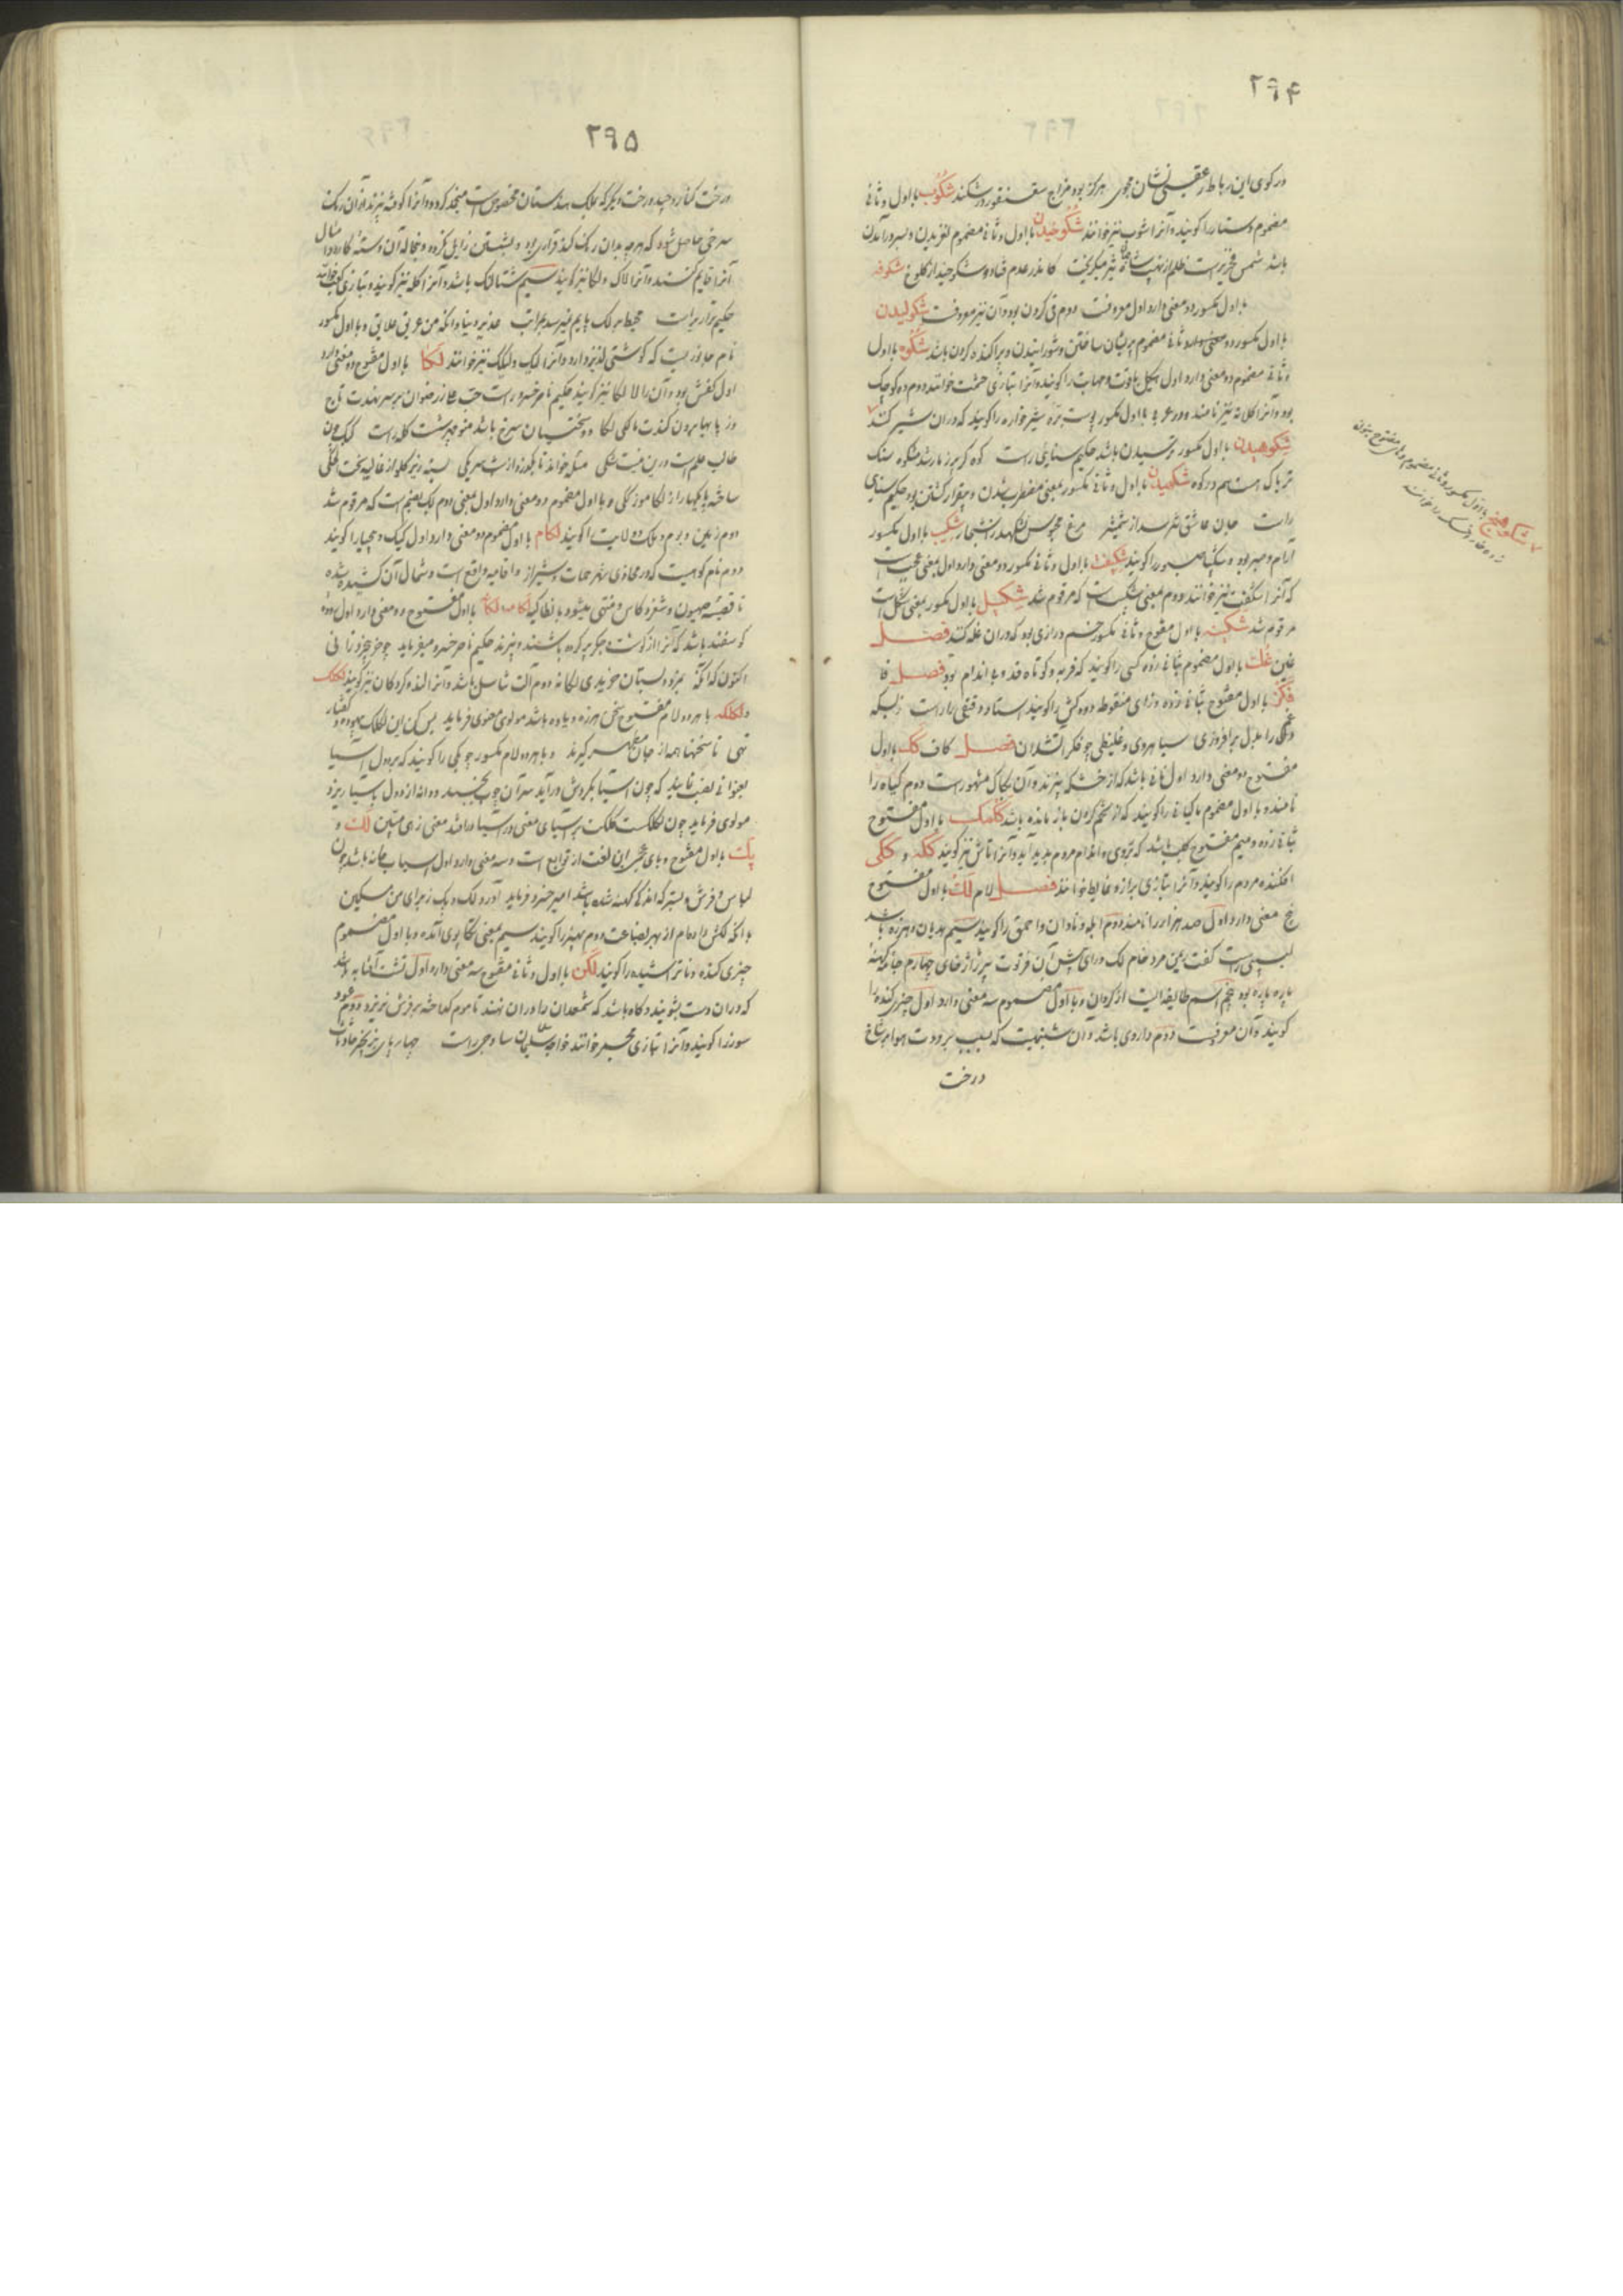 ۲۹۴
در کوی این رباط نشان مجوی هرگز بود مزاج سقنقور در شکند شکوب با اول و ثانی
مضموم دستار را گویند و آنرا اشوب نیز خوانند شکوخیدن با اول و ثانی مضموم لغزیدن و بسر در آمدن
باشد شمس فخری راست ظلم از نهیب تیر میگریخت کاندر عدم فتاد و شکوخید از کلوخ شکوفه
با اول مکسور دو معنی دارد اول معروفست دوم قی کردن بود و آن نیز معروفست شکولیدن
با اول مکسور و ثانی مضموم پریشان ساختن و شورانیدن و پراکنده کردن باشد شکوه با اول
و ثانی مضموم دو معنی دارد اول هیکل باقوت و مهابت را گویند و آنرا بتازی حشمت خوانند دوم ده کوچک
بود و آنرا کلاته نیز نامند و در عربی با اول مکسور پوست بره شیر خواره را گویند که دران شیر کنند
شکوهیدن با اول مکسور ترسیدن باشد حکیم سنایی راست کوه گر پر ز مار شد مشکوه سنک
تریاک هست هم در کوه شکیبیدن با اول و ثانی مکسور بمعنی مضطرب شدن و بیقرار گشتن بود حکیم سنایی
راست جان عاشق نترسد از شمشیر مرغ محبوس نشکهد ز اشجار شکیب با اول مکسور
آرام و صبر بود و شکیبا صبور را گویند شکیفت با اول و ثانی مکسور دو معنی دارد اول بمعنی عجیب است
که آنرا شگفت نیز خوانند و دوم بمعنی شکیب است که مرقوم شد شکیل با اول مکسور بمعنی شکال است
مرقوم شد شکینه با اول مفتوح و ثانی مکسور خم درازی بود که دران غله کنند فصل
غین غک با اول مضموم بثانی زده کسی را گویند که فربه و کوتاه قد و بی اندام بود فصل فا
فکز با اول مفتوح بثانی زده و زای منقوطه دوده کش را گویند استاد دقیقی راست زبسکه
را بدل برافروزی سیاهروی و غلیظی چو فکز آتشدان فصل کاف کک با اول
مفتوح دو معنی دارد اول نانی باشد که از خشکه پزند و آن بکاک مشهور است دوم گیاه را
نامند و با اول مضموم ماکیانی را گویند که از تخم کردن باز مانده باشد ککمک با اول مفتوح
بثانی زده و میم مفتوح کلف باشد که بروی و اندام مردم پدید آید و آنرا تاش نیز گویند ککه و ککی
افکنده مردم را گویند و آنرا بتازی براز و غایط خوانند فصل لام لک با اول مفتوح
پنج معنی دارد اول صد هزار را نامند دوم ابله و نادان و احمق را گویند سیم هذیان و هرزه باشد
لبیبی راست گفت ریمن مرد خام لک درای پیش آن فرتوت پیر ژاژخای چهارم جامه کهنه
پاره پاره بود پنجم اسم طایفه ایست از کردان و با اول مضموم سه معنی دارد اول چیز گنده را
گویند و آن معروفست دوم داروی باشد و آن شبنمیست که بسبب برودت هوا بر شاخ
درخت
شکوهنج با اول مکسور و ثانی مضموم و های مفتوح بنون
زده خار و خسک را خوانند
۲۹۵
درخت کنار و چند درخت دیگر که بملک هندستان مخصوص است منجمد گردد و آنرا کوفته بپزند از آن رنگ
سرخی حاصل شود که هرچه بدان رنگ کنند قرار گیرد و بشستن زایل نگردد و بثخاله آن دسته کارد و امثال
آنرا قایم کنند و آنرا لاک و لکا نیز گویند سیم شتالنگ باشد و آنرا کله نیز گویند و بتازی کعب خوانند
حکیم نزاری راست محیط مرلک پایم نمیرسد بمراتب غدیر دنیا و انکه من غریق علایق و با اول مکسور
نام جانوریست که گوشتی لذیذ دارد و آنرا لیک و لکلک نیز خوانند لکا با اول مفتوح دو معنی دارد
اول کفش بود و آن را لالکا نیز گویند حکیم ناصر خسرو راست رضوان بر سر نهدت تاج
وز پا بها برون کندت مالکی لکا دوم تختیان سرخ باشد منوچهر شصت کله راست کبک چون
طالب علمست و درین نیست شکی مسئله خواند تا بگذرد از شب سه یکی بسته زیر گلو از غالیه تحت الحنکی
ساخته پایکها را ز لکا موزگکی و با اول مضموم دو معنی دارد اول بمعنی دوم لک بضم است که مرقوم شد
دوم زمین و بوم و ملک و ولایت را گویند لکام با اول مضموم دو معنی دارد اول کیک و بیحیا را گویند
دوم نام کوهیست که در محاذی شهر حمات و شیراز و افامیه واقع است و شمال آن کشیده شده
تا قضیه صهیون و شغر و کاس و منتهی میشود بانطاکیه لکامه لکانه با اول مفتوح دو معنی دارد اول روده
گوسفند باشد که آنرا از گوشت و جگر پر کرده باشند و بپزند حکیم ناصر خسرو میفرماید
اکنون که لکانه دوم آلت تناسل باشد و آنرا لنده کردگان نیز گویند لکلک
و لکلکه با هر دو لام مفتوح سخن هرزه و بیاوه باشد مولوی معنوی فرماید بس کن این لکلک بیهوده و گفتار
تهی تا سخنها همه از جان مطهر گیرند و با هر دو لام مکسور چوبکی را گویند که بر دول آسیا
بعنوانی نصب نمایند که چون آسیا بگردش درآید سر آن چوب بجنبد و دانه از دول بآسیا ریزد
مولوی فرماید چون لکلکست کلکت بر آسیای معنی در آسیا درافتد معنی زهی متین لک و
پک با اول مفتوح و بای عجمی این لغت از توابع است و سه معنی دارد اول اسباب خانه باشد چون
لباس و فرش و بستر که اندکی کهنه شده باشد امیر خسرو فرماید آورد لک و پک ز برای من مسکین
با آنکه لکش داده ام از بهر بضاعت دوم بی هنر را گویند سیم بمعنی تکاپوی آمده و با اول مضموم
چیزی گنده و ناتراشیده را گویند لکن با اول و ثانی مفتوح سه معنی دارد اول تشت آفتابه باشد
که دران دست بشویند و گاه باشد که شمعدان را دران نهند تا موم گداخته بر فرش نریزد دوم عود
سوز را گویند و آنرا بتازی مجمر خوانند خواجه سلمان ساوجی راست